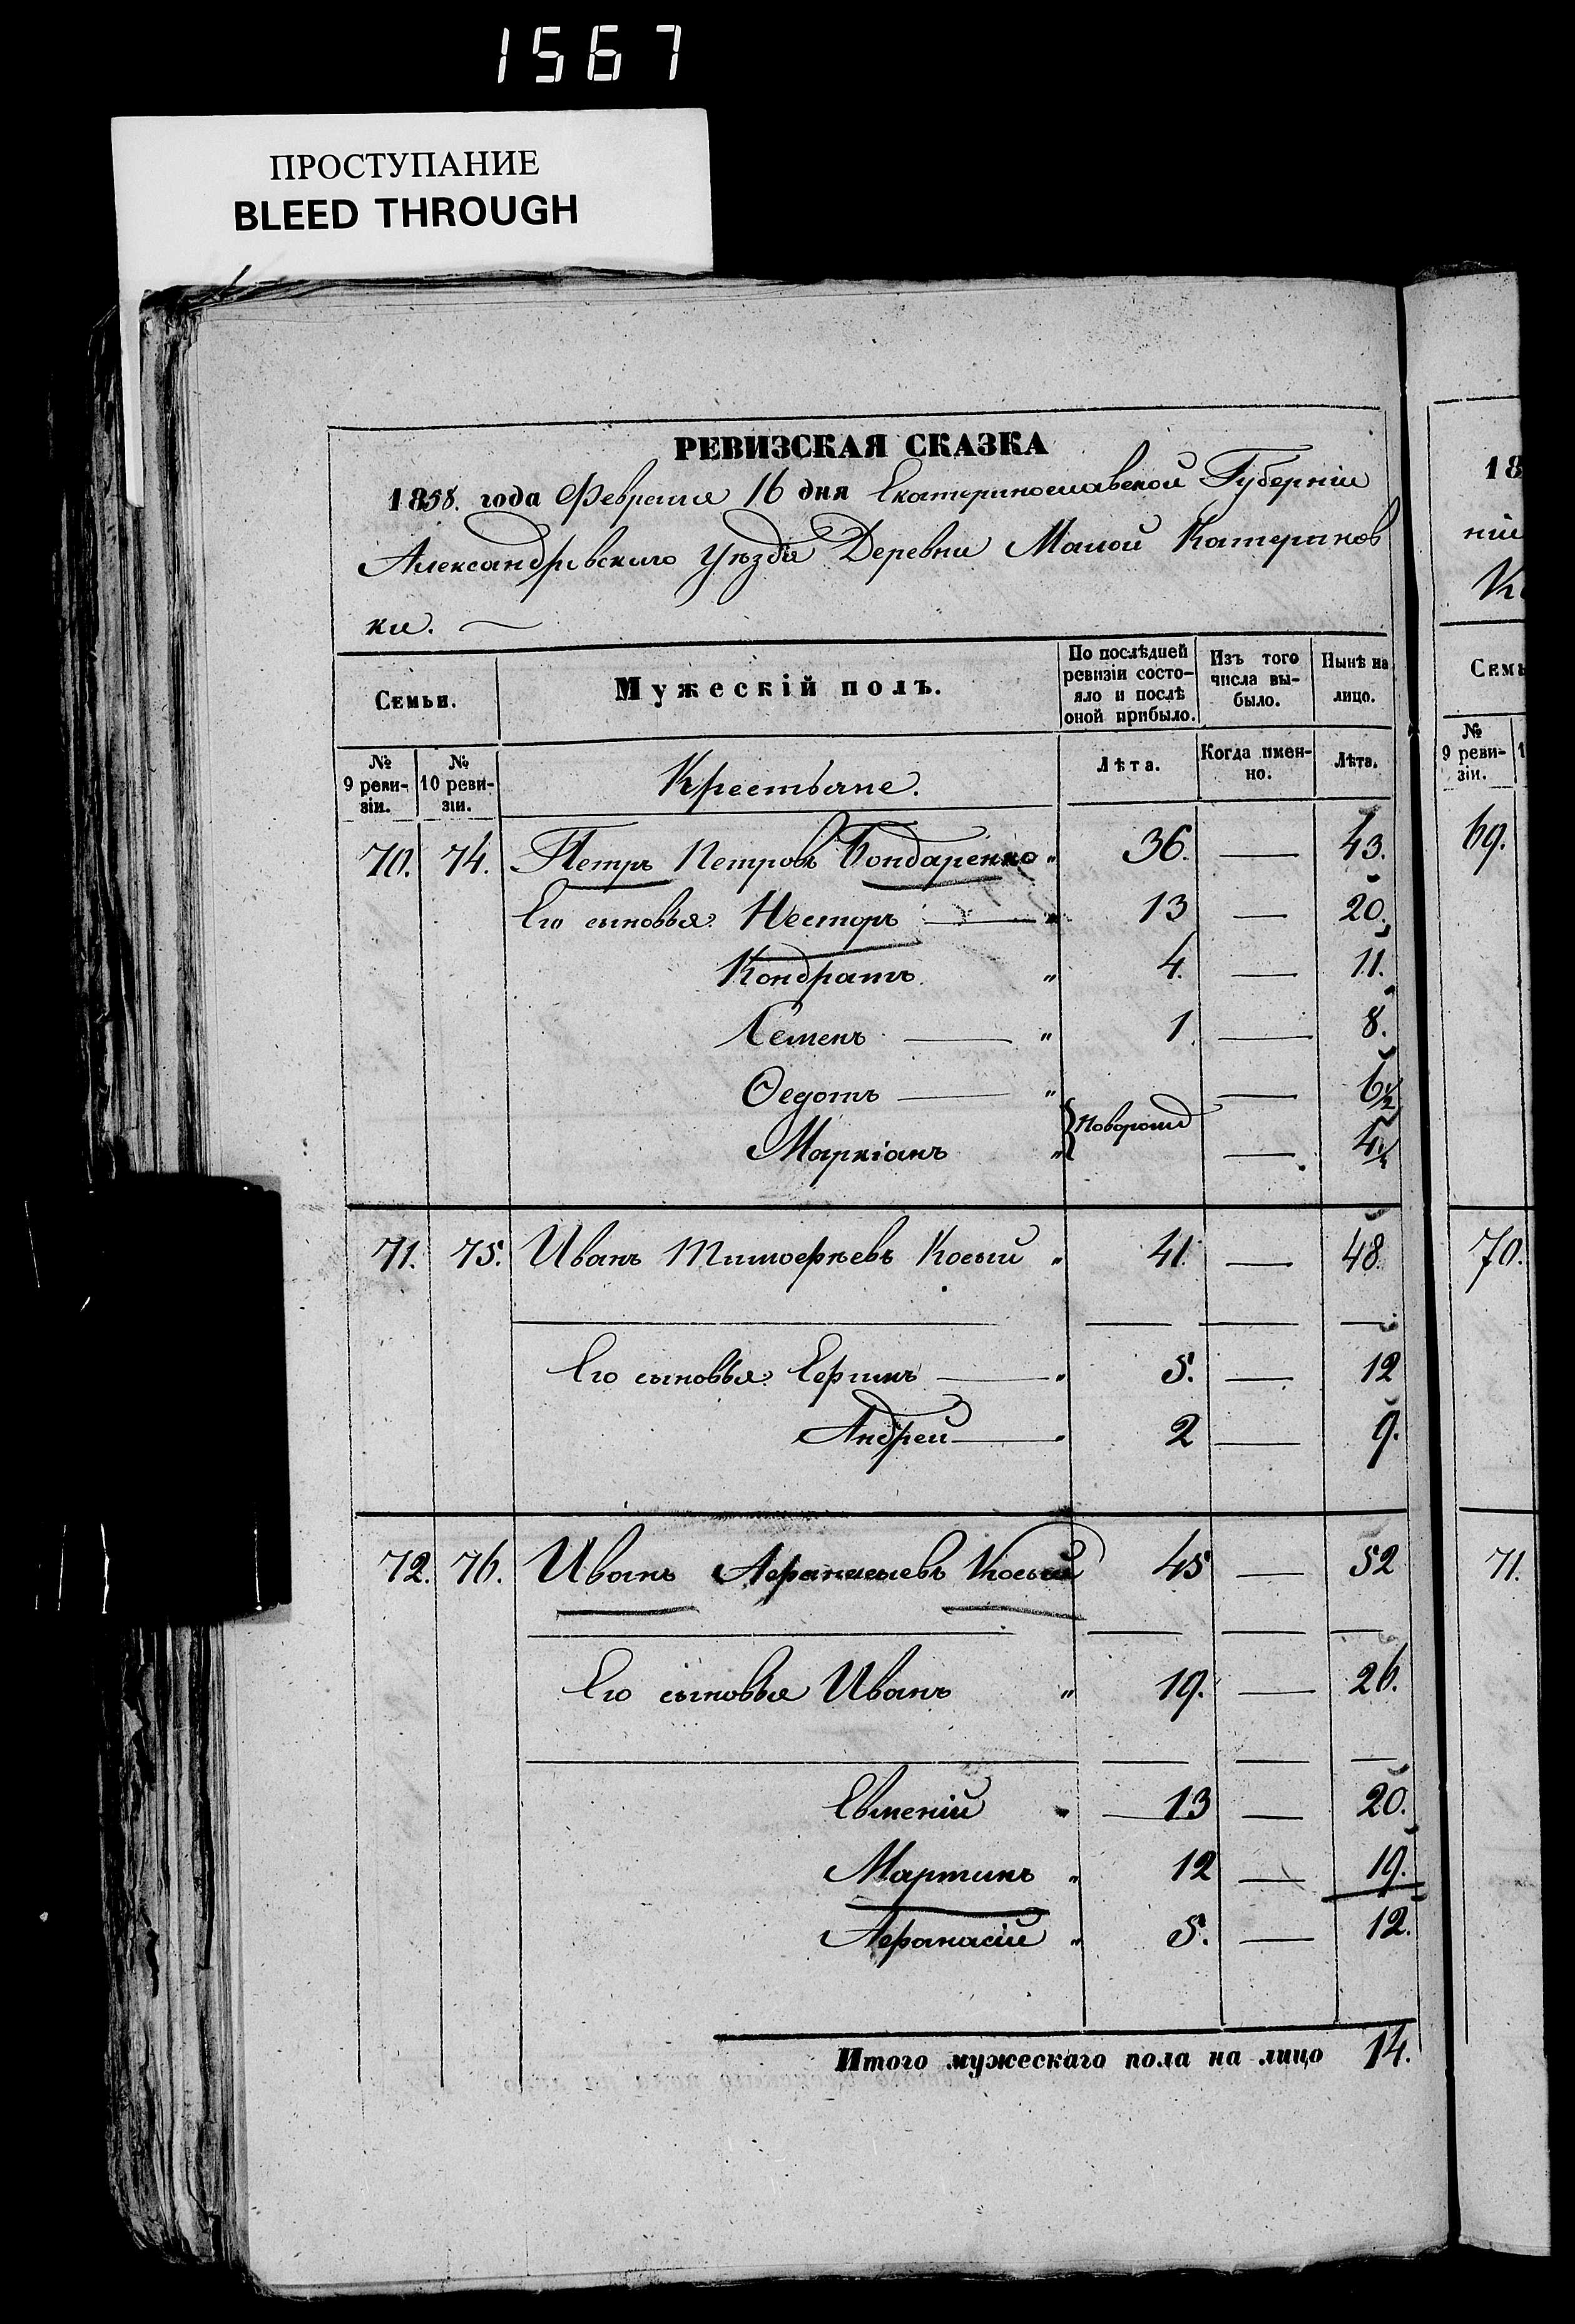 1567
ПРОСТУПАНИЕ
BLEED THROUGH
РЕВИЗСКАЯ СКАЗКА
1858. года Февраля 16 дня Екатеринославской Губерніи
Александровскаго Уѣзда Деревни Малой Катеринов
ки.
Семьи. Мужескій полъ. По послѣдней ревизіи состо- яло и послѣ оной прибыло. Изъ того числа вы- было. Нынѣ на лицо.
№ 9 реви- зіи. № 10 реви- зіи. Крестьяне. Лѣта. Когда имен- но. Лѣта.
70. 74. Петръ Петровъ Бондаренко " 36. — 43.
Его сыновья: Несторъ — " 13 — 20.
Кондратъ " 4. — 11.
Семенъ — " 1. — 8.
Ѳедотъ — " — 6½
Маркіанъ " } Новорожд — 4½
71. 75. Иванъ Тимофѣевъ Косый " 41. — 48.
Его сыновья: Ефимъ — " 5. — 12
Андрей — " 2 — 9.
72. 76. Иванъ Афанасьевъ Косый 45 — 52
Его сыновья Иванъ " 19. — 26.
Евменій " 13 — 20.
Мартинъ " 12 — 19.
Афанасій " 5. — 12.
Итого мужескаго пола на лицо 14.
18
ніи
Семь
№ 9 реви- зіи.
69.
70.
71.